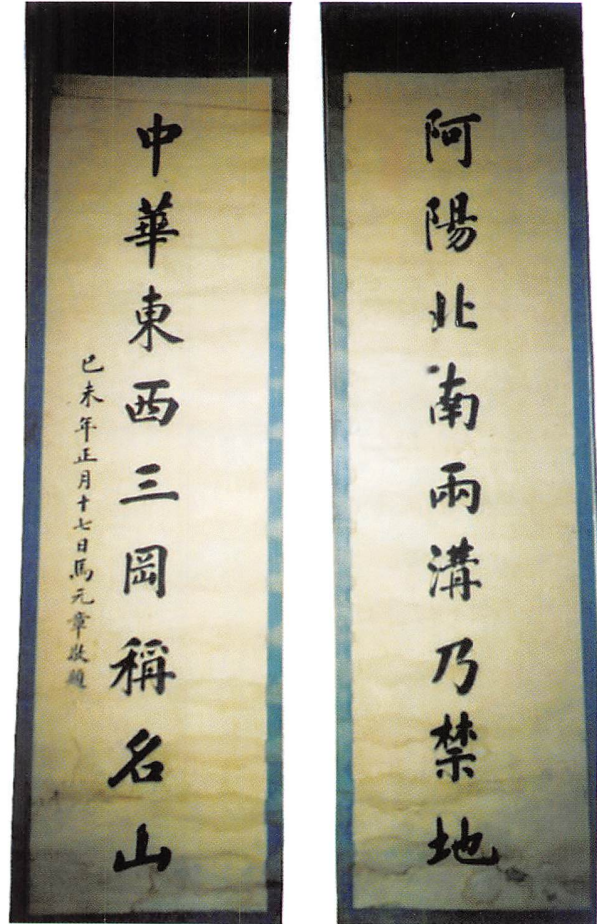 阿陽北南兩溝乃禁地
中華東西三岡稱名山
已未年正月十七日馬元章敬題